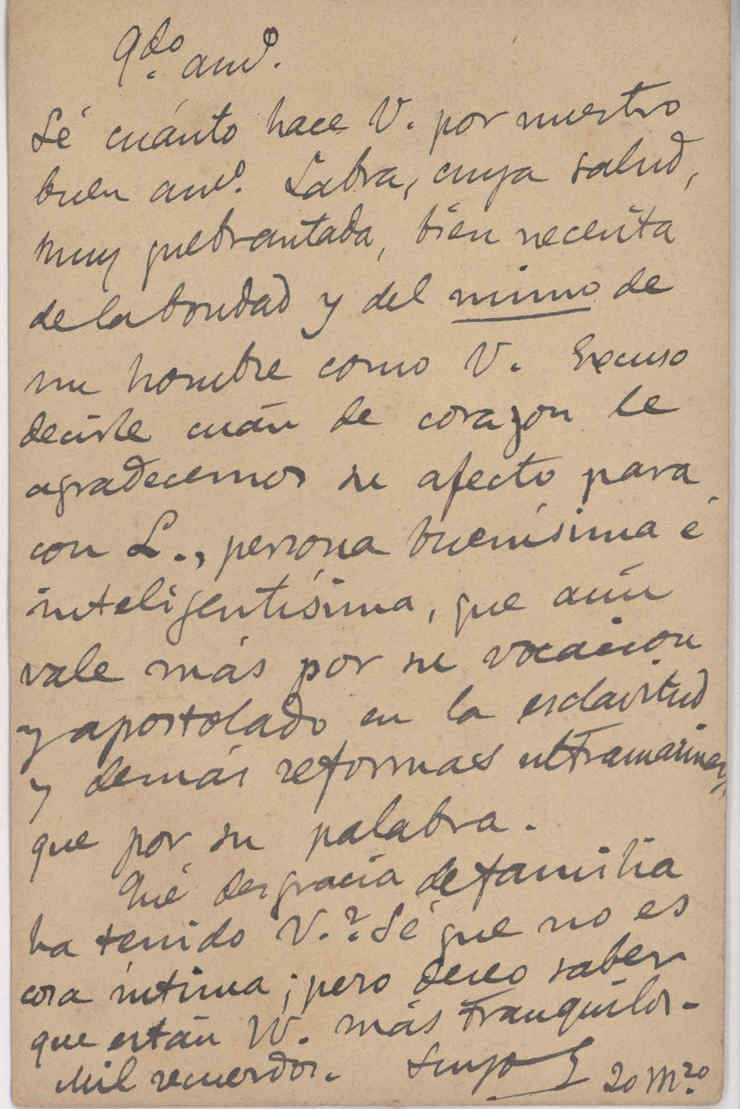 Qdo. amo.
Sé cuánto hace V. por nuestro
buen amo. Labra, cuya salud,
muy quebrantada, bien necesita
de la bondad y del mimo de
un hombre como V. Excuso
decirle cuán de corazon le
agradecemos su afecto para
con L., persona buenísima é
inteligentísima, que aún
vale más por su vocacion
y apostolado en la esclavitud
y demás reformas ultramarinas,
que por su palabra.
Qué desgracia de familia
ha tenido V.? Sé que no es
cosa íntima; pero deseo saber
que están VV. más tranquilos.
Mil recuerdos. Suyo 20 Mzo